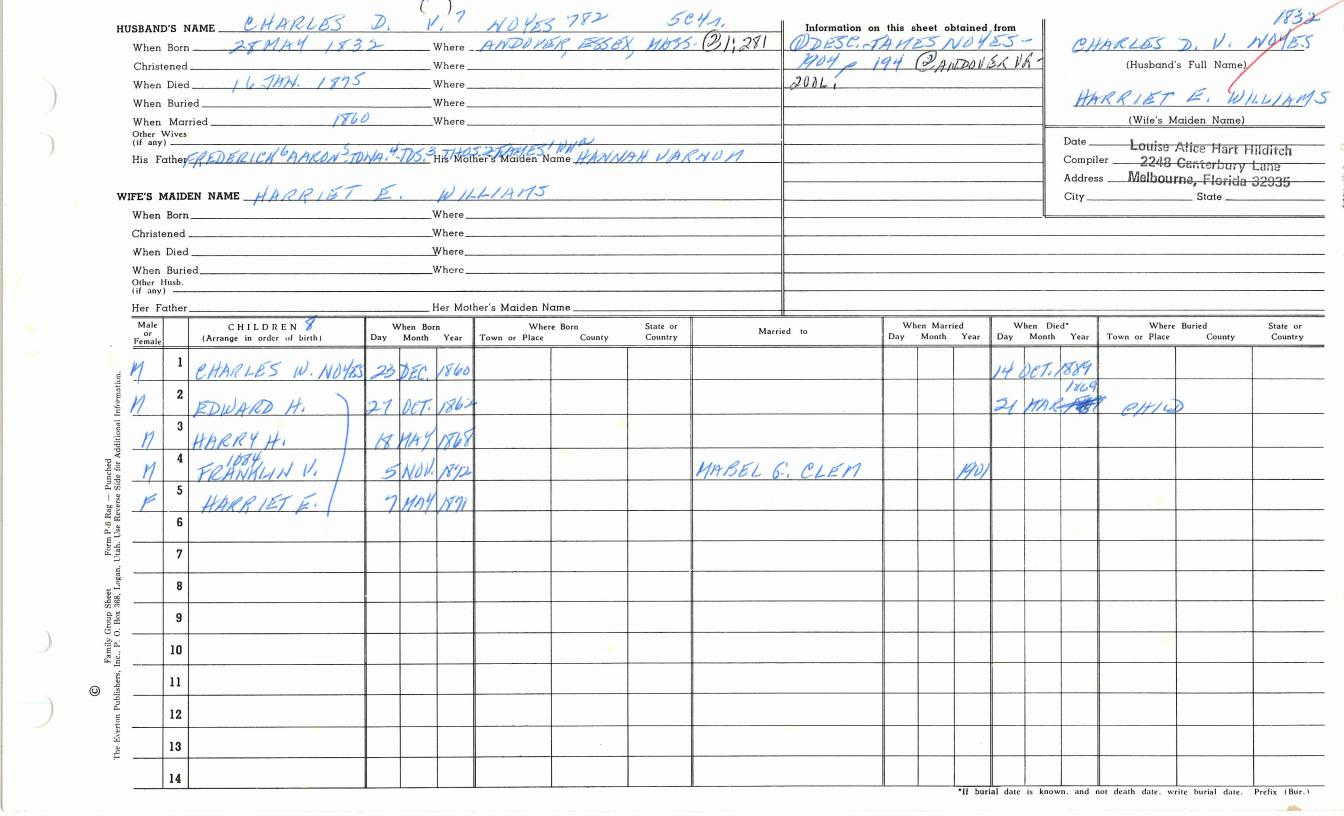 HUSBAND'S NAME CHARLES D. V.7 NOYES 782 5CH1.
When Born 28 MAY 1832 Where ANDOVER, ESSEX, MASS. (2)1;281
Christened Where
When Died 16 JAN. 1875 Where
When Buried Where
When Married 1860 Where
Other Wives
(if any)
His Father FREDERICK6 AARON5 JONA.4 JOS.3 THOS.2 JAMES1 His Mother's Maiden Name HANNAH VARNUM
WIFE'S MAIDEN NAME HARRIET E. WILLIAMS
When Born Where
Christened Where
When Died Where
When Buried Where
Other Husb.
(if any)
Her Father Her Mother's Maiden Name
Information on this sheet obtained from
(1) DESC. JAMES NOYES -
1904 p 194 (2) ANDOVER VR -
1832
CHARLES D. V. NOYES
(Husband's Full Name)
HARRIET E. WILLIAMS
(Wife's Maiden Name)
Date
Compiler
Address
City State
Louise Alice Hart Hilditch
2248 Canterbury Lane
Melbourne, Florida 32935
Male or Female
CHILDREN 8
(Arrange in order of birth)
When Born
Day Month Year
Where Born
Town or Place County State or Country
Married to
When Married
Day Month Year
When Died*
Day Month Year
Where Buried
Town or Place County State or Country
M 1 CHARLES W. NOYES 23 DEC. 1860 14 OCT. 1889
M 2 EDWARD H. 27 OCT. 1862 21 MAR 1869 CHILD
M 3 HARRY H. 18 MAY 1868
1084
M 4 FRANKLIN V. 5 NOV. 1872 MABEL G. CLEM 1901
F 5 HARRIET E. 7 MAY 1871
6
7
8
9
10
11
12
13
14
*If burial date is known, and not death date, write burial date. Prefix (Bur.)
© Family Group Sheet Form P-8 Rag — Punched
The Everton Publishers, Inc., P. O. Box 368, Logan, Utah. Use Reverse Side for Additional Information.